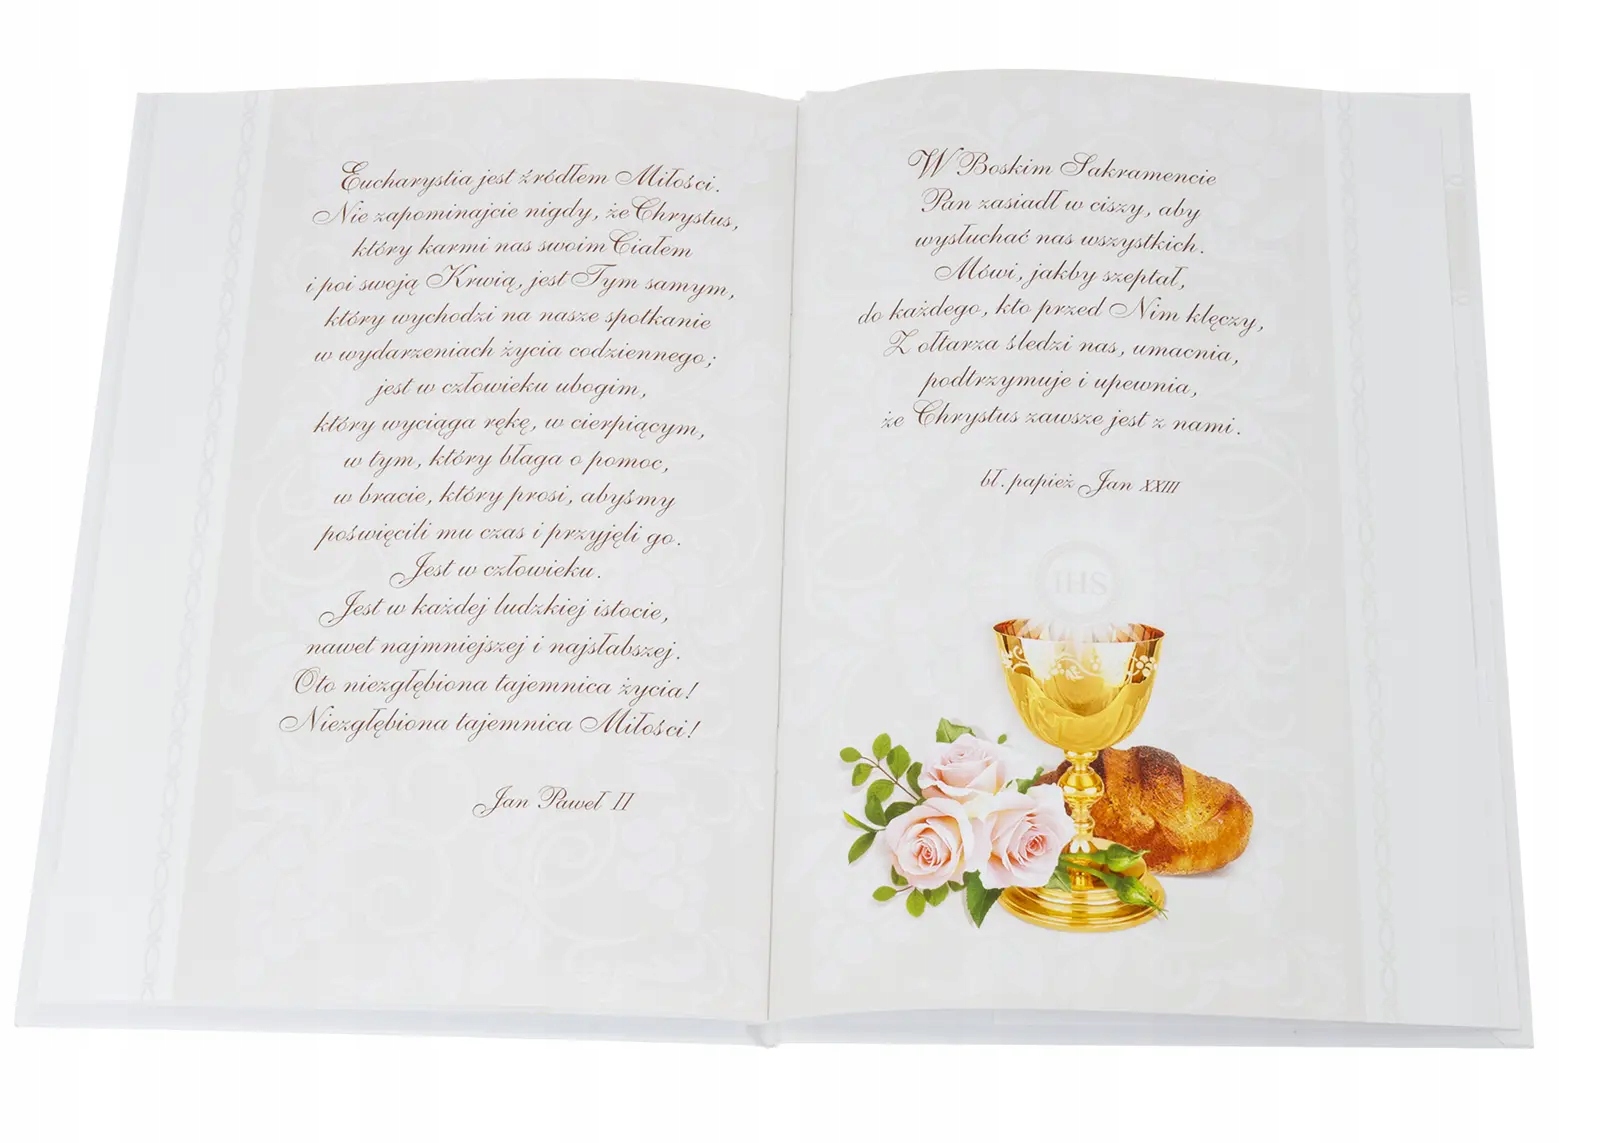 Eucharystia jest źródłem Miłości.
Nie zapominajcie nigdy, że Chrystus,
który karmi nas swoim Ciałem
i poi swoją Krwią, jest Tym samym,
który wychodzi na nasze spotkanie
w wydarzeniach życia codziennego;
jest w człowieku ubogim,
który wyciąga rękę, w cierpiącym,
w tym, który błaga o pomoc,
w bracie, który prosi, abyśmy
poświęcili mu czas i przyjęli go.
Jest w człowieku.
Jest w każdej ludzkiej istocie,
nawet najmniejszej i najsłabszej.
Oto niezgłębiona tajemnica życia!
Niezgłębiona tajemnica Miłości!
Jan Paweł II
W Boskim Sakramencie
Pan zasiadł w ciszy, aby
wysłuchać nas wszystkich.
Mówi, jakby szeptał,
do każdego, kto przed Nim klęczy,
Z ołtarza śledzi nas, umacnia,
podtrzymuje i upewnia,
że Chrystus zawsze jest z nami.
bł. papież Jan XXIII
IHS